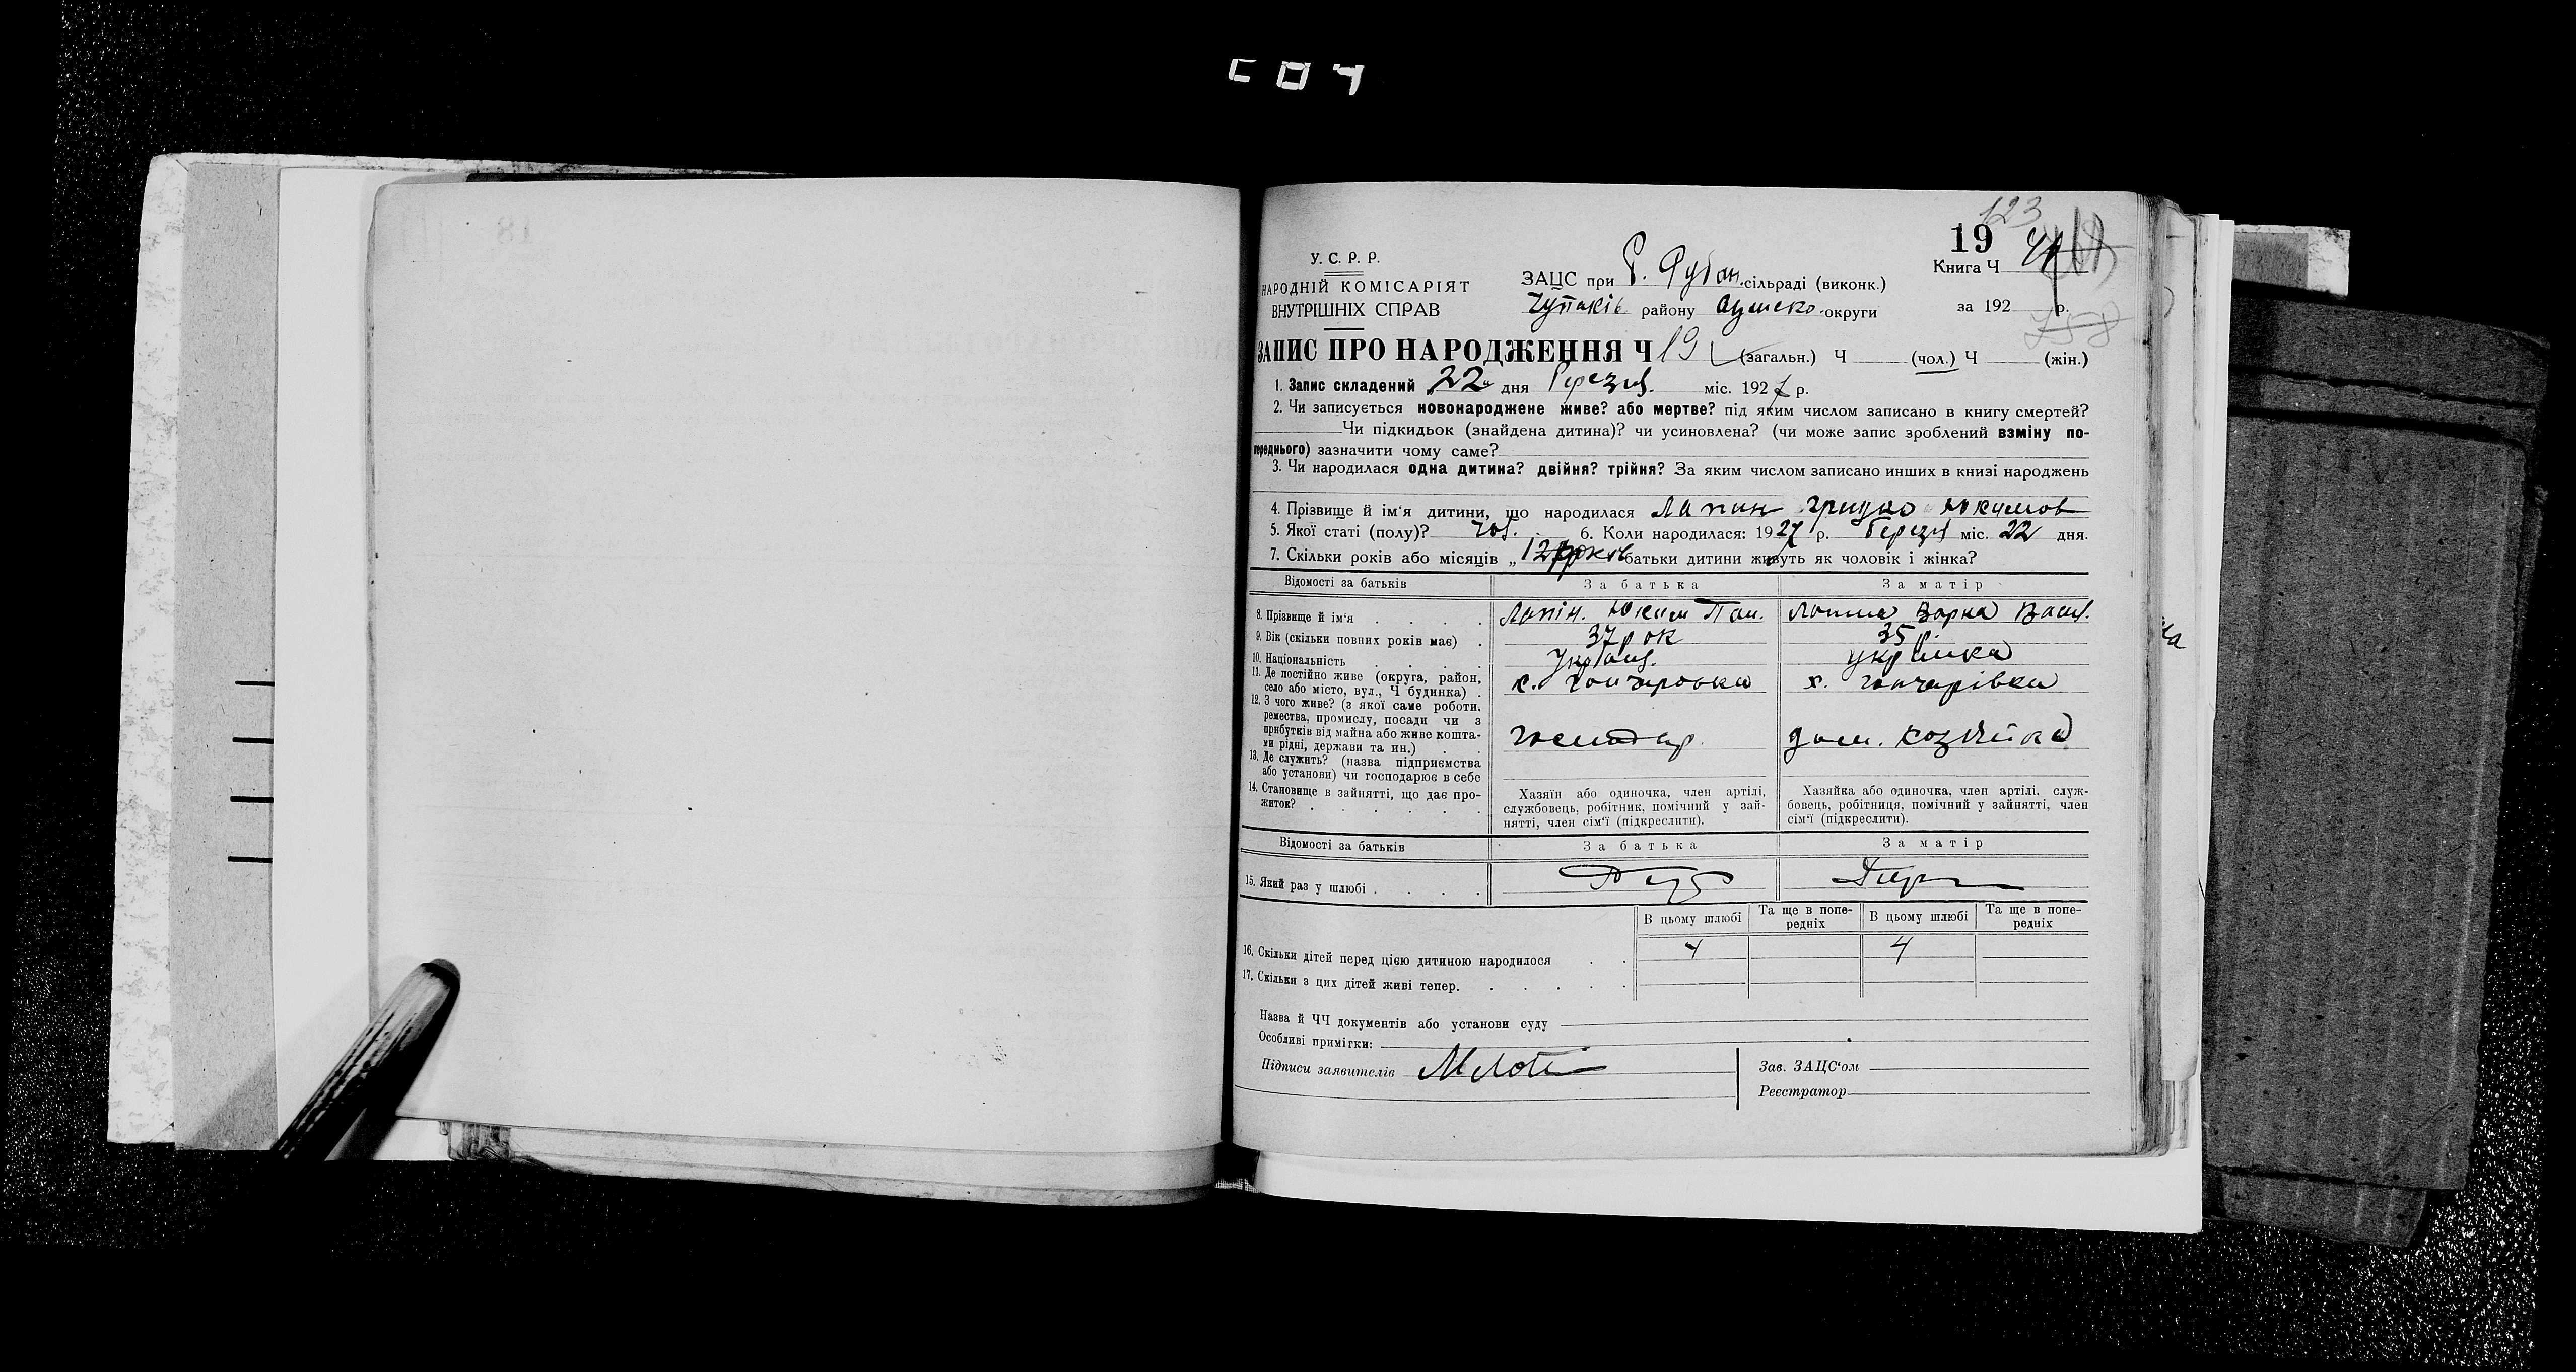 123
19
У. С. Р. Р.
НАРОДНІЙ КОМІСАРІЯТ
ВНУТРІШНІХ СПРАВ
ЗАЦС при Р. Рубан. сільраді (виконк.)
Книга Ч
Чупахів. району Сумсько- округи
за 192 р.
758
ЗАПИС ПРО НАРОДЖЕННЯ Ч 19 (загальн.) Ч (чол.) Ч (жін.)
1. Запис складений 22 дня березня міс. 1927 р.
2. Чи записується новонароджене живе? або мертве? під яким числом записано в книгу смертей?
Чи підкидьок (знайдена дитина)? чи усиновлена? (чи може запис зроблений взміну по-
переднього) зазначити чому саме?
3. Чи народилася одна дитина? двійня? трійня? За яким числом записано инших в книзі народжень
4. Прізвище й ім'я дитини, що народилася Лапин Грицко Юкимов
5. Якої статі (полу)? чол. 6. Коли народилася: 1927 р. березня міс. 22 дня.
7. Скільки років або місяців „ 12 років батьки дитини живуть як чоловік і жінка?
Відомості за батьків За батька За матір
8. Прізвище й ім'я Лапін. Юким Пан. Лапина Варка Васил.
9. Вік (скільки повних років має) 37 рок 35 р.
10. Національність українка
11. Де постійно живе (округа, район, село або місто, вул., Ч будинка) х. Гончаровка х. Гончарівка
12. З чого живе? (з якої саме роботи, ремества, промислу, посади чи з прибутків від майна або живе кошта-
ми рідні, держави та ин.) господар. дом. хозяйка
13. Де служить? (назва підприємства
або установи) чи господарює в себе
14. Становище в зайнятті, що дає про-
житок?
Хазяїн або одиночка, член артілі,
службовець, робітник, помічний у зай-
нятті, член сім'ї (підкреслити).
Хазяйка або одиночка, член артілі, служ-
бовець, робітниця, помічний у зайнятті, член
сім'ї (підкреслити).
Відомості за батьків За батька За матір
15. Який раз у шлюбі
В цьому шлюбі Та ще в попе-
редніх В цьому шлюбі Та ще в попе-
редніх
16. Скільки дітей перед цією дитиною народилося 4 4
17. Скільки з цих дітей живі тепер.
Назва й ЧЧ документів або установи суду
Особливі примітки:
Підписи заявителів
Зав. ЗАЦС'ом
Реєстратор